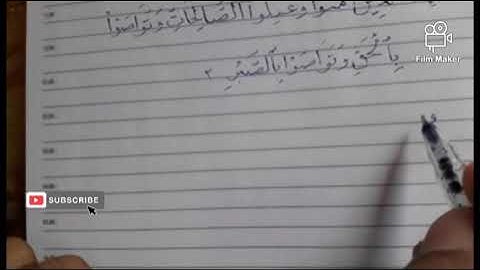 وَعَمِلُوا الصَّالِحَاتِ وَتَوَاصَوْا
بِالْحَقِّ وَتَوَاصَوْا بِالصَّبْرِ
Film Maker
SUBSCRIBE